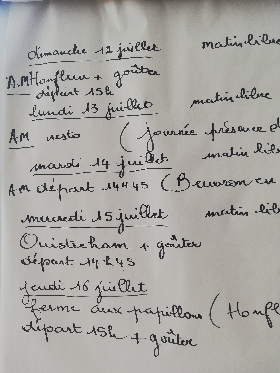 dimanche 12 juillet matin libre
A.M Honfleur + goûter
départ 15h
lundi 13 juillet matin libre
AM resto (journée présence
mardi 14 juillet matin lib
AM départ 14h45 (Beuvron en
mercredi 15 juillet matin lib
Ouistreham + goûter
départ 14h45
jeudi 16 juillet
ferme aux papillons (Honf
départ 15h + goûter